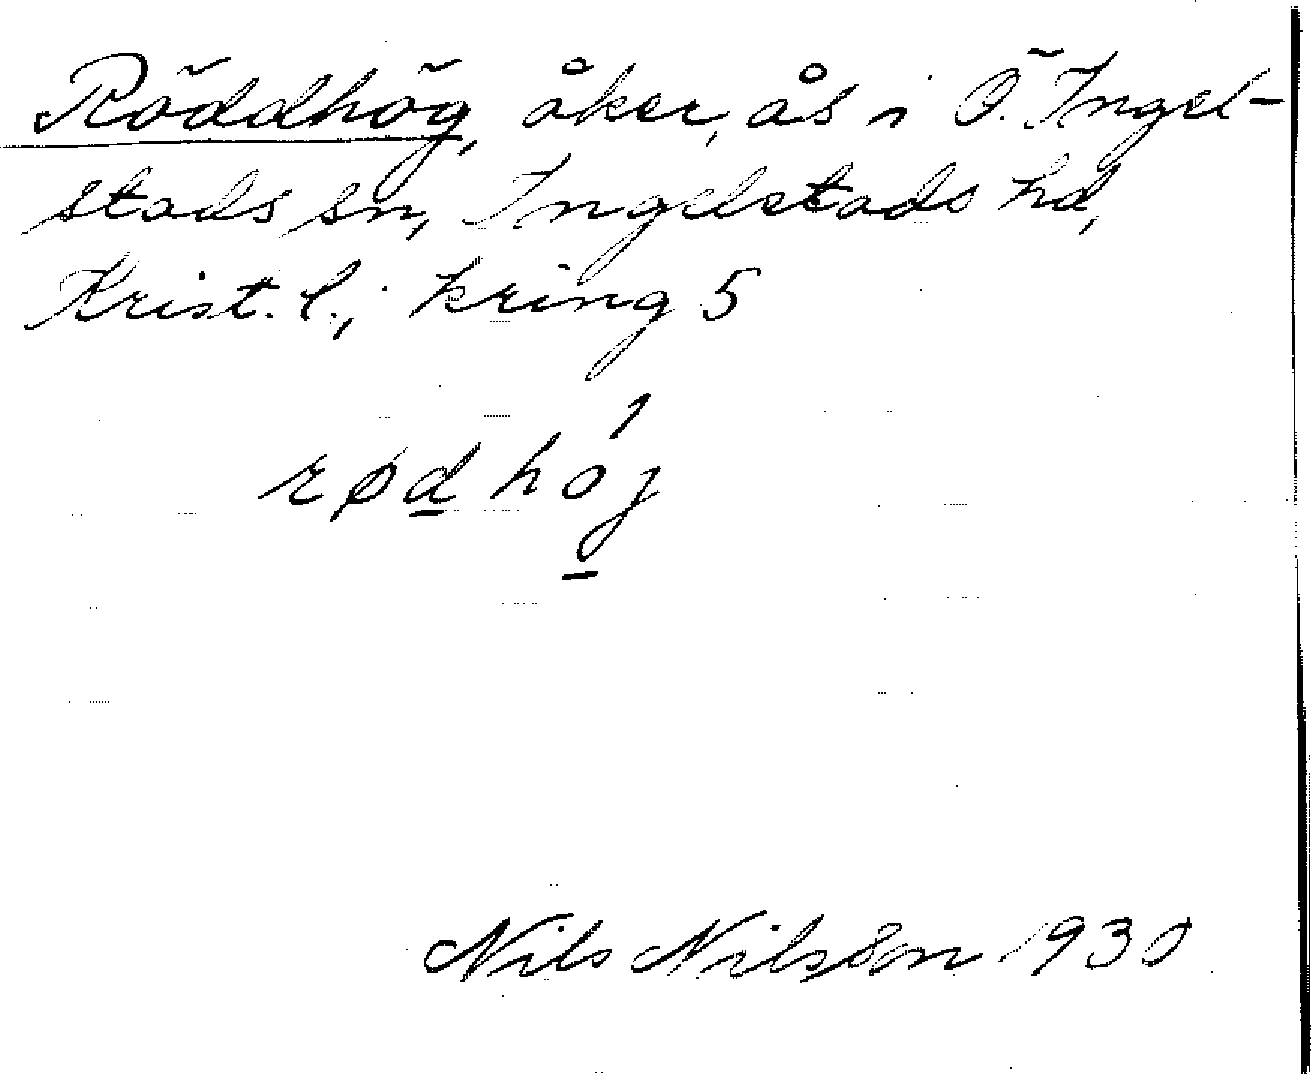 Röddhög, åker, ås i Ö. Ingel-
stads sn, Ingelstads hd,
Krist. l.; kring 5
rød høj
Nils Nilsson 1930